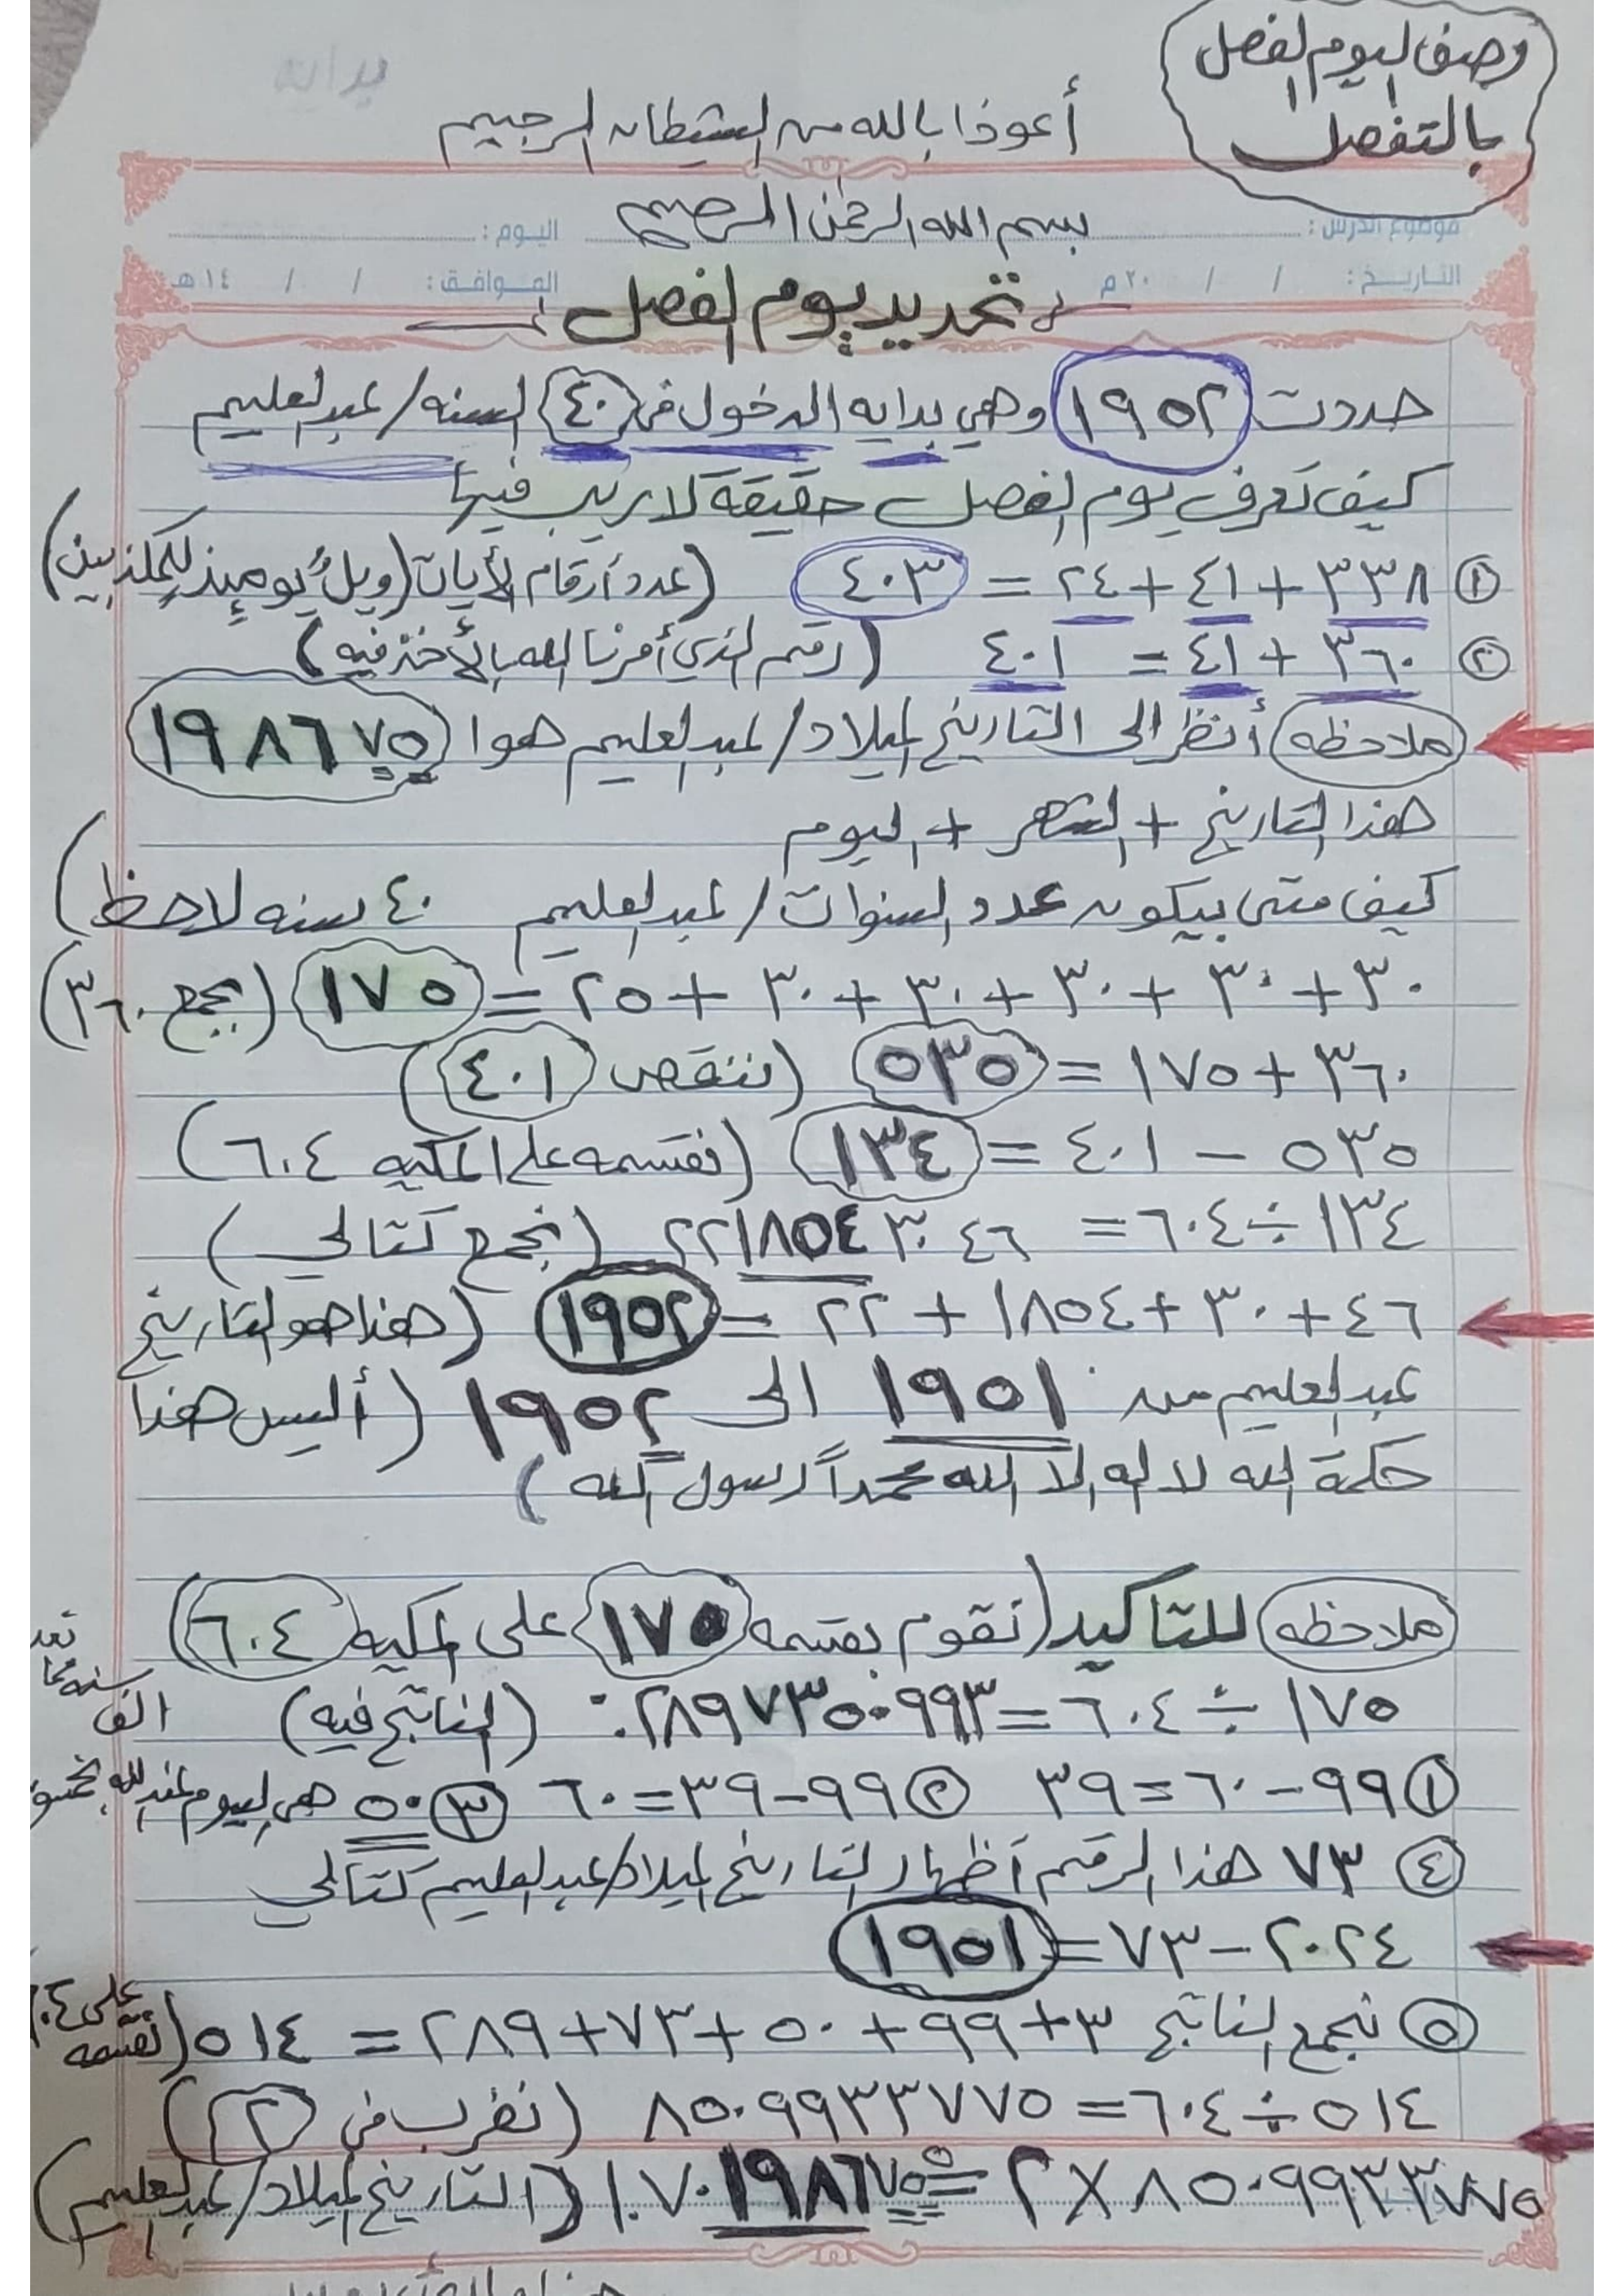 وصف اليوم الفصل
بالتفصل
بدايه
أعوذا بالله من الشيطان الرجيم
بسم الله الرحمن الرحيم
موضوع الدرس : اليوم :
التاريخ : / / ٢٠ م الموافق : / / ١٤ هـ
تحديد يوم الفصل
حددت ١٩٥٢ وهي بدايه الدخول في ٤٠ السنه / عبدالعليم
كيف تعرف يوم الفصل حقيقة لا ريب فيها
① ٣٣٨ + ٤١ + ٢٤ = ٤٠٣ (عدد أرقام الأيات (ويلٌ يومئذٍ للمكذبين)
② ٣٦٠ + ٤١ = ٤٠١ (رقم الذي أمرنا الله بالأخذ فيه)
ملاحظه أنظر الى التاريخ لميلاد / عبدالعليم هوا ١٩٨٦٧٥
هذا التاريخ + الشهر + اليوم
كيف متى بيكون عدد السنوات / عبدالعليم ٤٠ سنه لاحظ)
٣٠ + ٣٠ + ٣٠ + ٣٠ + ٣٠ + ٢٥ = ١٧٥ (بجمع ٣٦٠)
٣٦٠ + ١٧٥ = ٥٣٥ (ننقص ٤٠١)
٥٣٥ − ٤٠١ = ١٣٤ (نقسمه على المكيه ٦٠٤)
١٣٤ ÷ ٦٠٤ = ٢٢١٨٥٤٣٠٤٦ (نجمع كتالي)
٤٦ + ٣٠ + ١٨٥٤ + ٢٢ = ١٩٥٢ (هذا هو التاريخ
عبدالعليم من ١٩٥١ الى ١٩٥٢ (أليس هذا
حكمة الله لا اله الا الله محمداً رسول الله)
ملاحظه للتاكيد (نقوم بقسمه ١٧٥ على المكيه ٦٠٤)
١٧٥ ÷ ٦٠٤ = ٢٨٩٧٣٥٠٩٩٣.٠ (الناتج فيه)
① ٩٩ − ٦٠ = ٣٩ ② ٩٩ − ٣٩ = ٦٠ ③ ٥٠ هي اليوم عند الله بخمسون
الف سنه مما تعد
④ ٧٣ هذا الرقم أظهار التاريخ لميلاد / عبدالعليم كتالي
٢٠٢٤ − ٧٣ = ١٩٥١
⑤ نجمع الناتج ٣ + ٩٩ + ٥٠ + ٧٣ + ٢٨٩ = ٥١٤ (نقسمه على
٥١٤ ÷ ٦٠٤ = ٨٥٠٩٩٣٣٧٧٥ (نضرب في ٢)
٨٥٠٩٩٣٣٧٧٥ × ٢ = ١٧٠١٩٨٦٧٥٥ (التاريخ لميلاد / عبدالعليم)